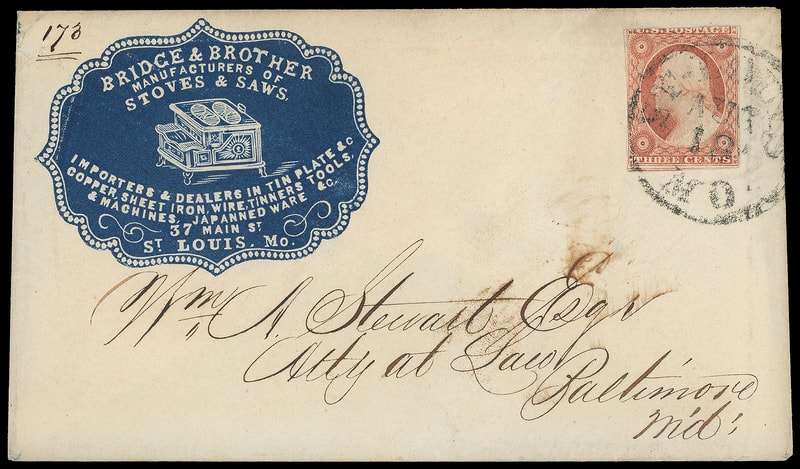 173
BRIDGE & BROTHER
MANUFACTURERS OF
STOVES & SAWS,
IMPORTERS & DEALERS IN TIN PLATE &C
COPPER, SHEET IRON, WIRE, TINNERS TOOLS,
& MACHINES, JAPANNED WARE &C.
37 MAIN ST
ST LOUIS, MO.
U.S. POSTAGE
THREE CENTS
MO.
Wm A. Stewart Esqr
Atty at Law
Baltimore
Md